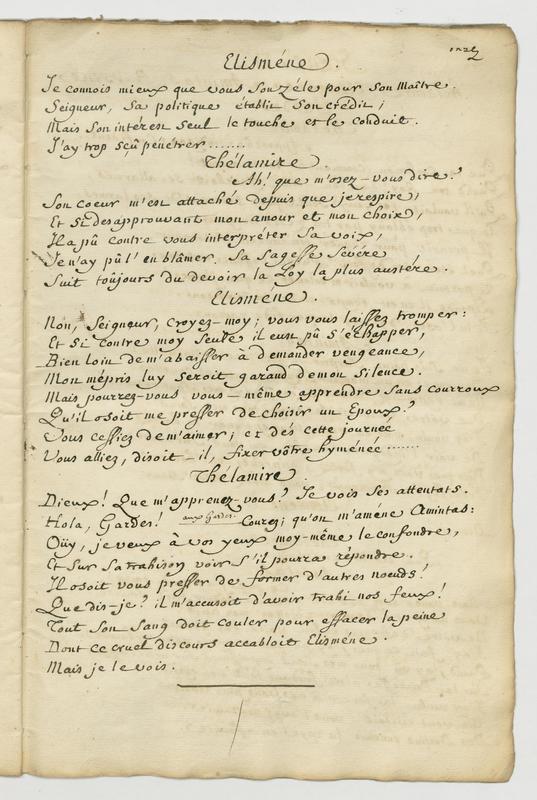 Elisméne.
Je connois mieux que vous son zéle pour son Maître.
Seigneur, sa politique établit son crédit;
Mais son intérest seul le touche et le conduit.
J'ay trop sçû pénétrer.......
Thélamire.
Ah! que m'osez-vous dire?
Son coeur m'est attaché depuis que je respire;
Et si desapprouvant mon amour et mon choix,
Il a pû contre vous interpréter sa voix,
Je n'ay pû l'en blâmer. Sa sagesse sévére
Suit toûjours du devoir la Loy la plus austére.
Elisméne.
Non, Seigneur, croyez-moy; vous vous laissez tromper:
Et si contre moy seule il eut pû s'échapper,
Bien loin de m'abaisser à demander vengeance,
Mon mépris luy seroit garand de mon silence.
Mais pourrez-vous vous-même apprendre sans courroux
Qu'il osoit me presser de choisir un Epoux?
Vous cessiez de m'aimer; et dés cette journée
Vous alliez, disoit-il, fixer vôtre hyménée.......
Thélamire.
Dieux! Que m'apprenez-vous? Je vois ses attentats.
Hola, Gardes! aux Gardes. Courez; qu'on m'améne Amintas:
Oüy, je veux à vos yeux moy-même le confondre,
Et sur sa trahison voir s'il pourra répondre.
Il osoit vous presser de former d'autres noeuds!
Que dis-je? il m'accusoit d'avoir trahi nos feux!
Tout son sang doit couler pour effacer la peine
Dont ce cruel discours accabloit Elisméne.
Mais je le vois.